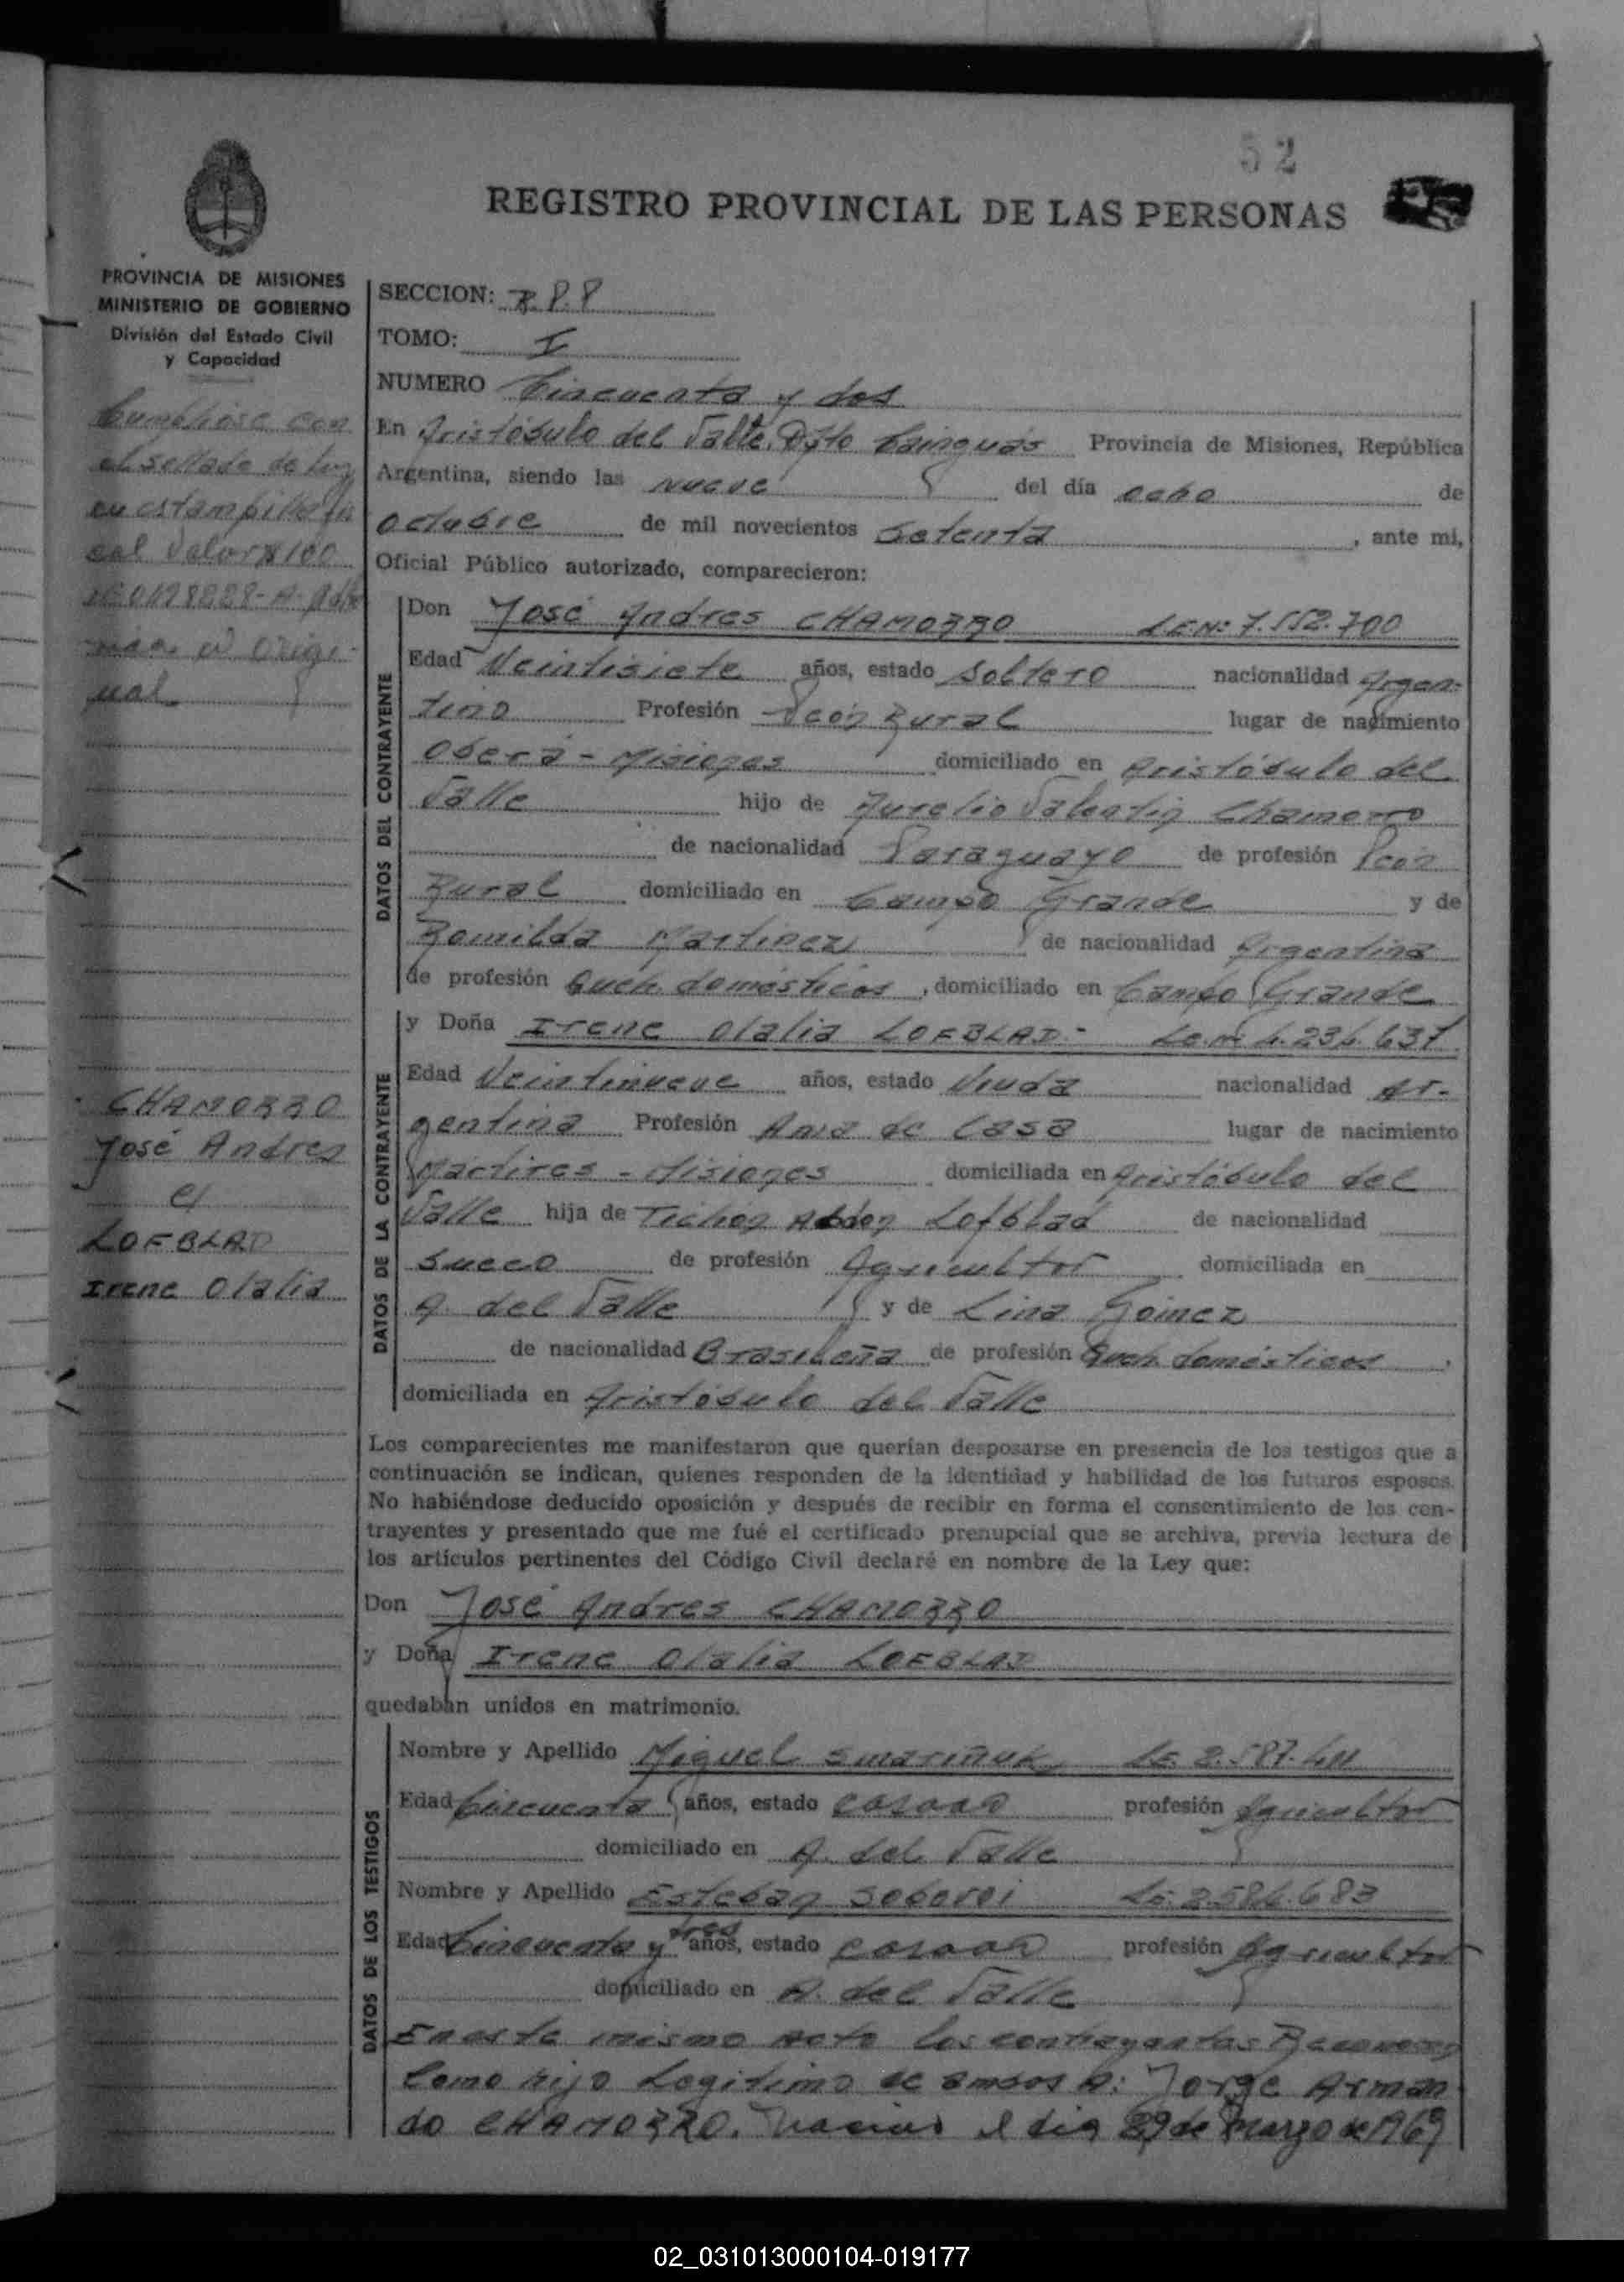 52
REGISTRO PROVINCIAL DE LAS PERSONAS
PROVINCIA DE MISIONES
MINISTERIO DE GOBIERNO
División del Estado Civil
y Capacidad
Cumpliose con
el sellado de Ley
en estampilla fis
cal valor $ 100
en origi-
nal
CHAMORRO
José Andres
c/
LOFBLAD
Irene Olalia
SECCION: R.P.P
TOMO: I
NUMERO Cincuenta y dos
En Aristóbulo del Valle, Dpto Cainguás Provincia de Misiones, República
Argentina, siendo las nueve del día ocho de
octubre de mil novecientos setenta, ante mi,
Oficial Público autorizado, comparecieron:
DATOS DEL CONTRAYENTE
Don José Andres CHAMORRO L.E.Nº 7.552.700
Edad Veintisiete años, estado soltero nacionalidad Argen-
tino Profesión Peón Rural lugar de nacimiento
Oberá - Misiones domiciliado en Aristóbulo del
Valle hijo de Aurelio Valentin Chamorro
de nacionalidad Paraguayo de profesión Peón
Rural domiciliado en Campo Grande y de
Romilda Martinez de nacionalidad Argentina
de profesión Queh. domésticos, domiciliado en Campo Grande
DATOS DE LA CONTRAYENTE
y Doña Irene Olalia LOFBLAD.- 4.234.637
Edad Veintinueve años, estado Viuda nacionalidad Ar-
gentina Profesión Ama de Casa lugar de nacimiento
Mártires - Misiones domiciliada en Aristóbulo del
Valle hija de Lofblad de nacionalidad
Sueco de profesión Agricultor domiciliada en
A. del Valle y de Lina Gomez
de nacionalidad Brasileña de profesión Queh. domésticos,
domiciliada en Aristóbulo del Valle
Los comparecientes me manifestaron que querían desposarse en presencia de los testigos que a
continuación se indican, quienes responden de la identidad y habilidad de los futuros esposos.
No habiéndose deducido oposición y después de recibir en forma el consentimiento de los con-
trayentes y presentado que me fué el certificado prenupcial que se archiva, previa lectura de
los artículos pertinentes del Código Civil declaré en nombre de la Ley que:
Don José Andres CHAMORRO
y Doña Irene Olalia LOFBLAD
quedaban unidos en matrimonio.
DATOS DE LOS TESTIGOS
Nombre y Apellido Miguel Smariñuk LE.
Edad Cincuenta años, estado casado profesión Agricultor
domiciliado en A. del Valle
Nombre y Apellido Esteban Soboroi LE. 2.584.683
Edad Cincuenta y tres años, estado casado profesión Agricultor
domiciliado en A. del Valle
En este mismo acto los contrayentes Reconocen
como hijo Legitimo de ambos A: Jorge Arman
do CHAMORRO. nacido el dia 29 de Marzo de 1969
02_031013000104-019177